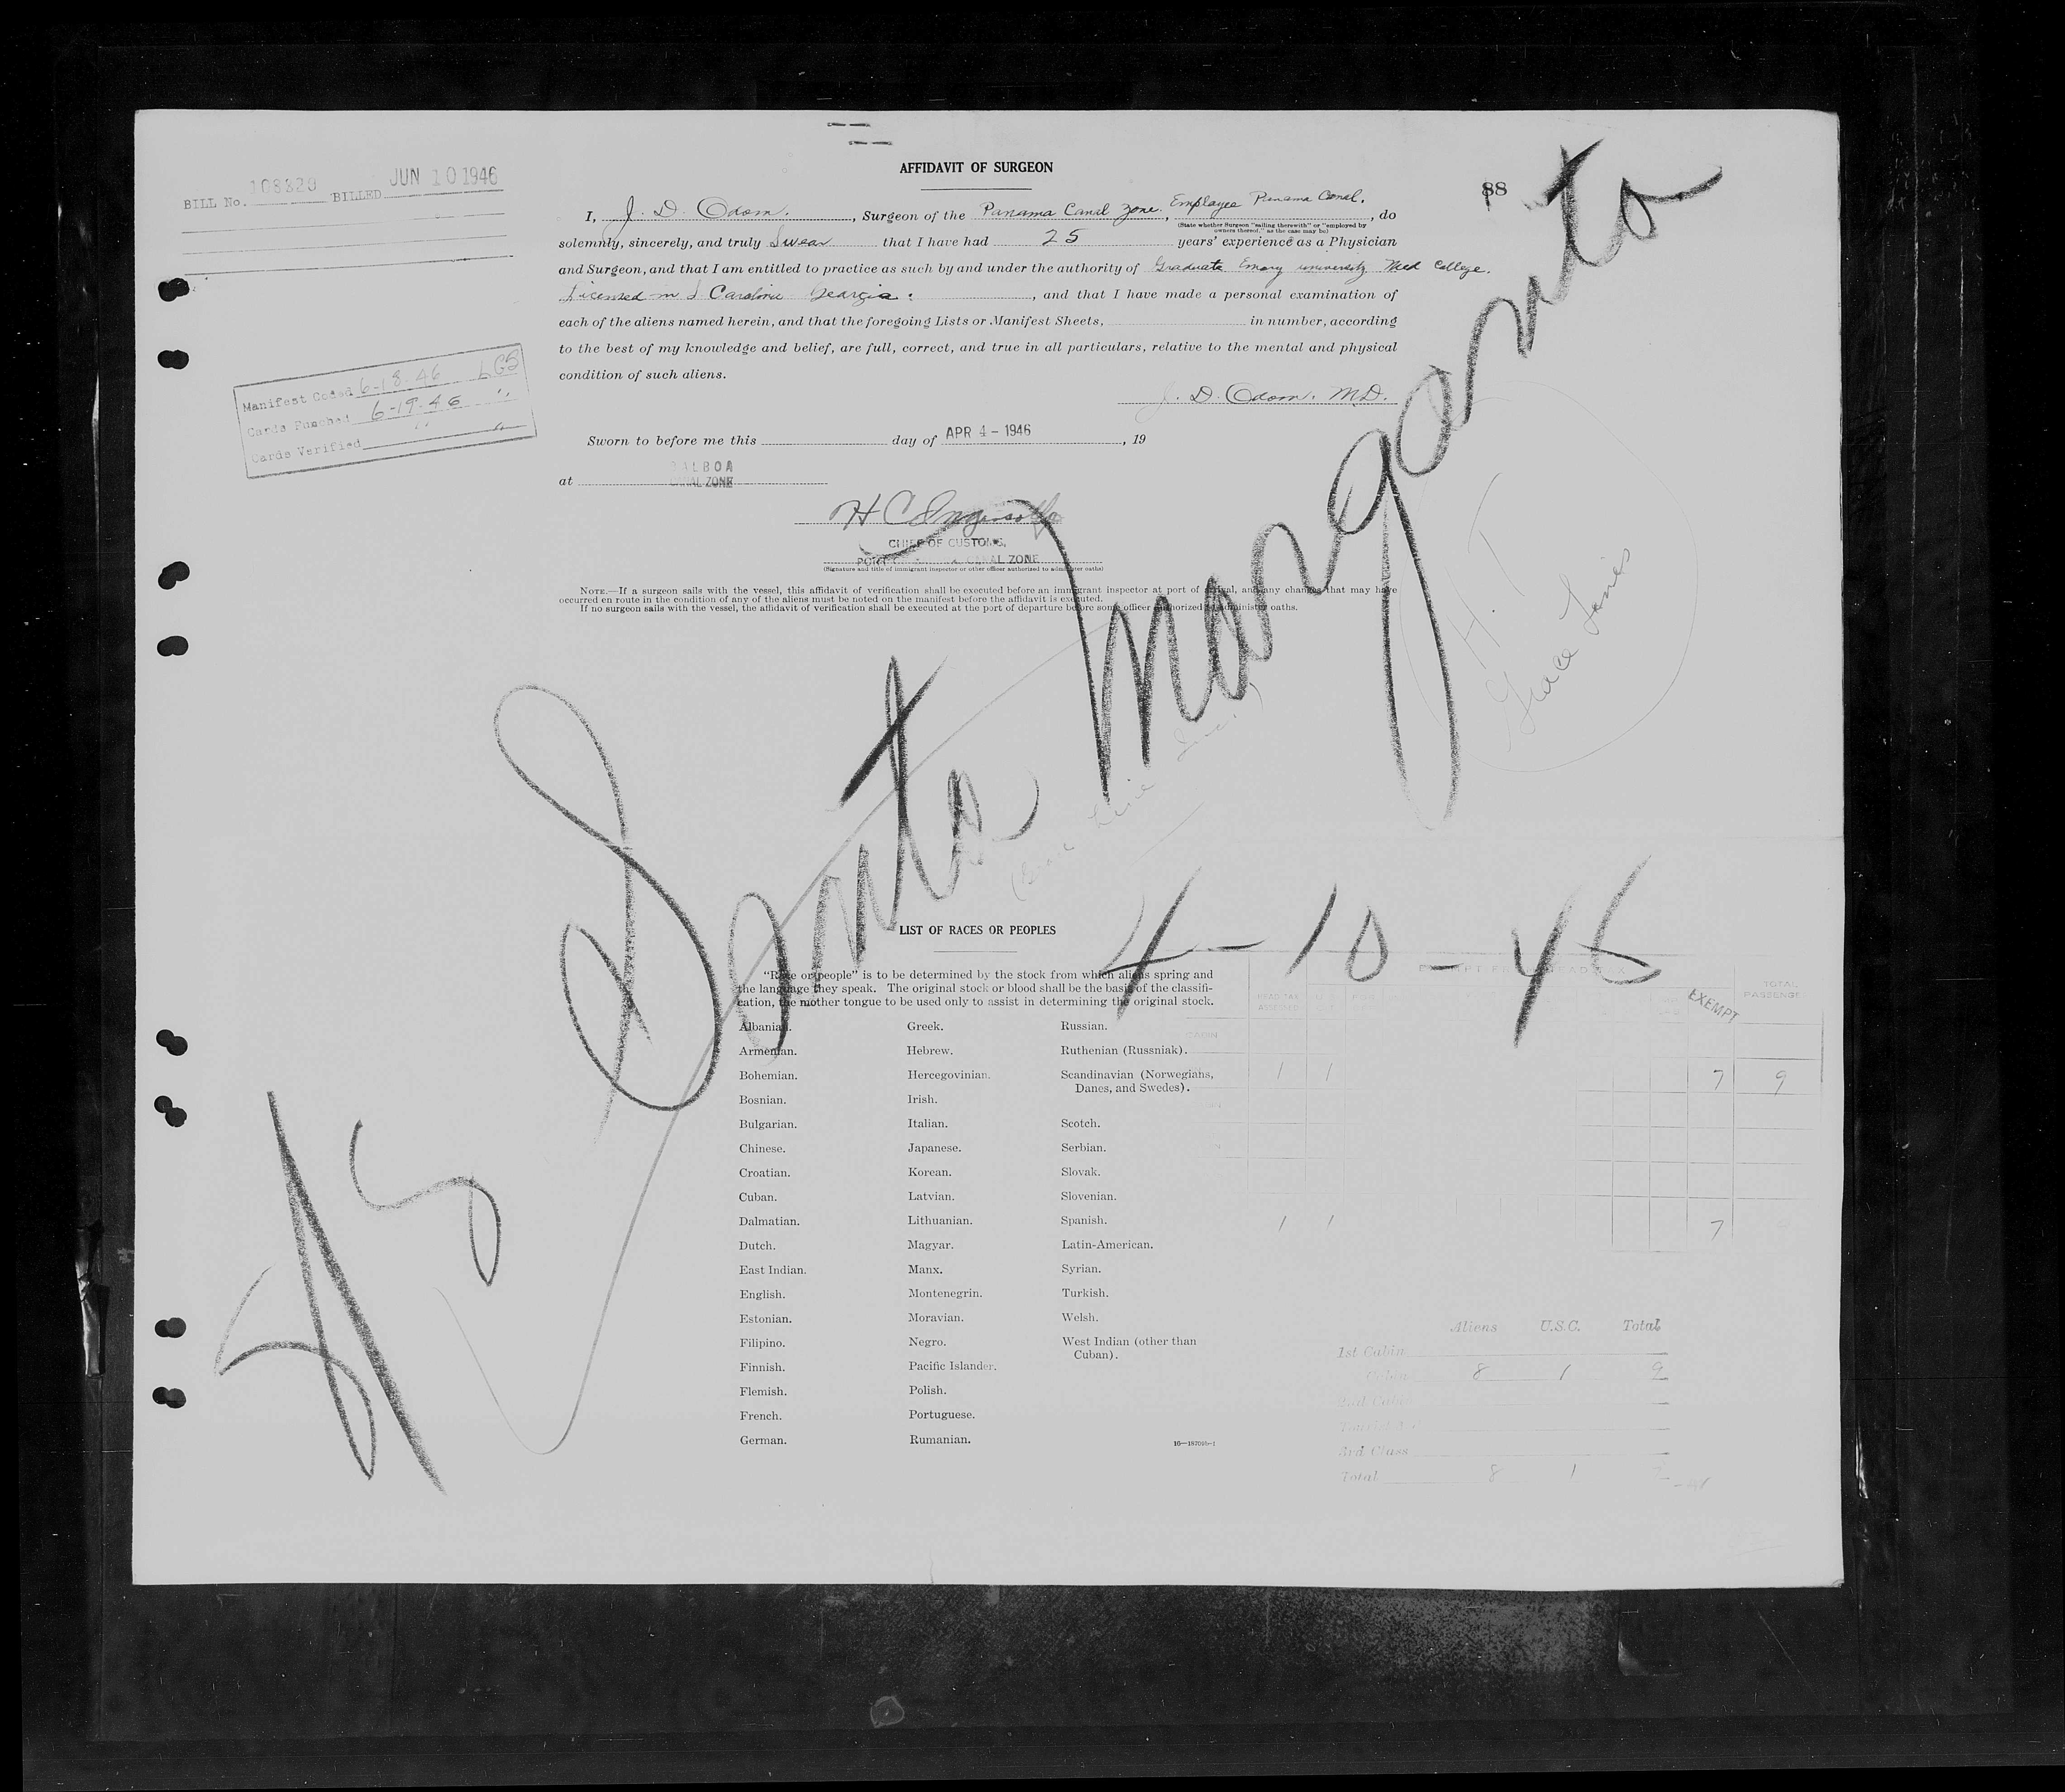 BILL No. 108329 BILLED JUN 10 1946
AFFIDAVIT OF SURGEON
88
I, J. D. Odom, Surgeon of the Panama Canal Zone, Employee Panama Canal, do
(State whether Surgeon "sailing therewith" or "employed by
owners thereof," as the case may be)
solemnly, sincerely, and truly Swear that I have had 25 years' experience as a Physician
and Surgeon, and that I am entitled to practice as such by and under the authority of Graduate Emory university Med College.
Licensed in S Carolina Georgia, and that I have made a personal examination of
each of the aliens named herein, and that the foregoing Lists or Manifest Sheets, in number, according
to the best of my knowledge and belief, are full, correct, and true in all particulars, relative to the mental and physical
condition of such aliens.
J. D. Odom. M.D.
Manifest Coded 6-18-46 LGS
Cards Punched 6-19-46 "
Cards Verified " "
Sworn to before me this day of APR 4 - 1946, 19
at BALBOA
CANAL ZONE
H C Ingersoll
CHIEF OF CUSTOMS,
PORT CANAL ZONE
(Signature and title of immigrant inspector or other officer authorized to administer oaths)
NOTE.—If a surgeon sails with the vessel, this affidavit of verification shall be executed before an immigrant inspector at port of arrival, and any changes that may have
occurred en route in the condition of any of the aliens must be noted on the manifest before the affidavit is executed.
If no surgeon sails with the vessel, the affidavit of verification shall be executed at the port of departure before some officer authorized to administer oaths.
H. T
Grace Lines
SS Santa Margarita
4-10-46
LIST OF RACES OR PEOPLES
"Race or people" is to be determined by the stock from which aliens spring and
the language they speak. The original stock or blood shall be the basis of the classifi-
cation, the mother tongue to be used only to assist in determining the original stock.
Albanian. Greek. Russian.
Armenian. Hebrew. Ruthenian (Russniak).
Bohemian. Hercegovinian. Scandinavian (Norwegians,
Danes, and Swedes).
Bosnian. Irish.
Bulgarian. Italian. Scotch.
Chinese. Japanese. Serbian.
Croatian. Korean. Slovak.
Cuban. Latvian. Slovenian.
Dalmatian. Lithuanian. Spanish.
Dutch. Magyar. Latin-American.
East Indian. Manx. Syrian.
English. Montenegrin. Turkish.
Estonian. Moravian. Welsh.
Filipino. Negro. West Indian (other than
Cuban).
Finnish. Pacific Islander.
Flemish. Polish.
French. Portuguese.
German. Rumanian.
HEAD TAX
EXEMPT
TOTAL
PASSENGE
CABIN
1 1 7 9
1 1 7
Aliens U.S.C. Total
1st Cabin
Cabin 8 1 9
2nd Cabin
3rd Class
Total 8 1